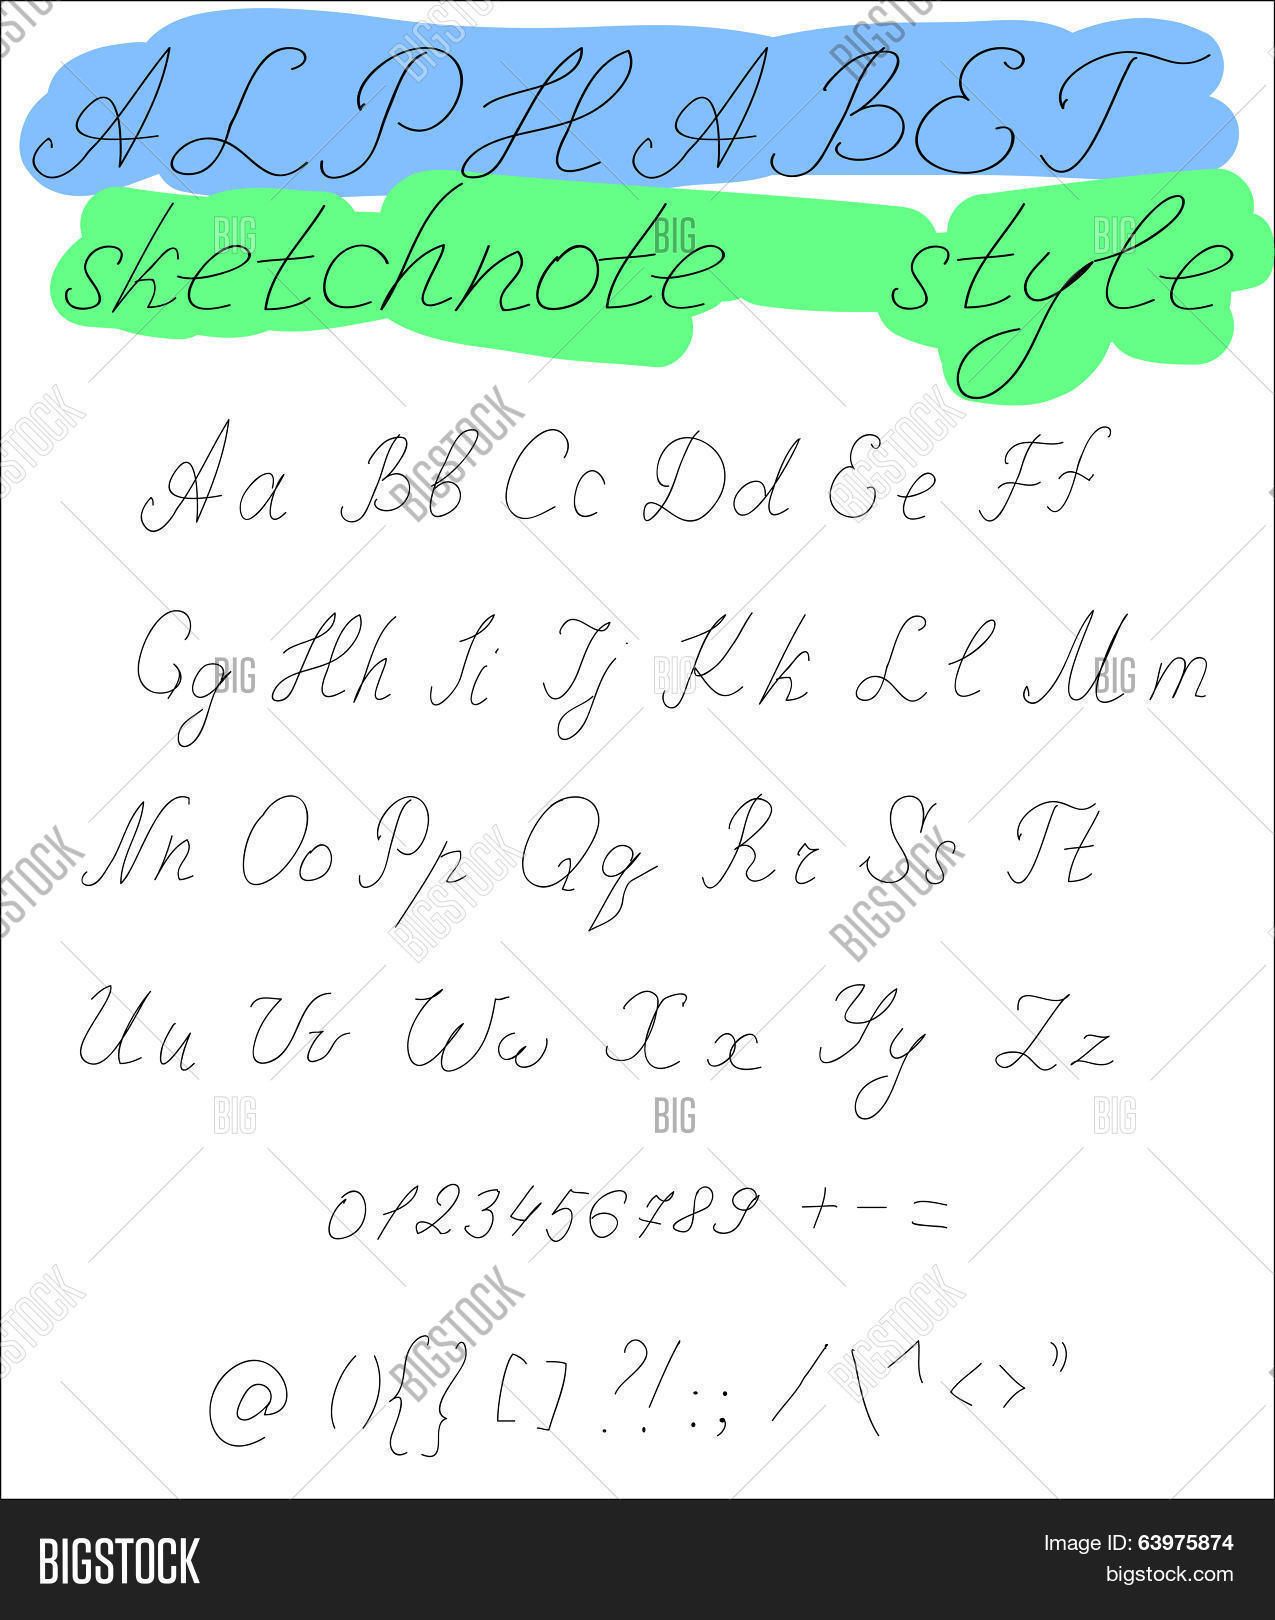 ALPHABET
sketchnote style
Aa Bb Cc Dd Ee Ff
Gg Hh Ii Jj Kk Ll Mm
Nn Oo Pp Qq Rr Ss Tt
Uu Vv Ww Xx Yy Zz
0123456789 + - =
@ () {} [] ?! : ; / \ ^ < > "
BIGSTOCK
Image ID: 63975874
bigstock.com